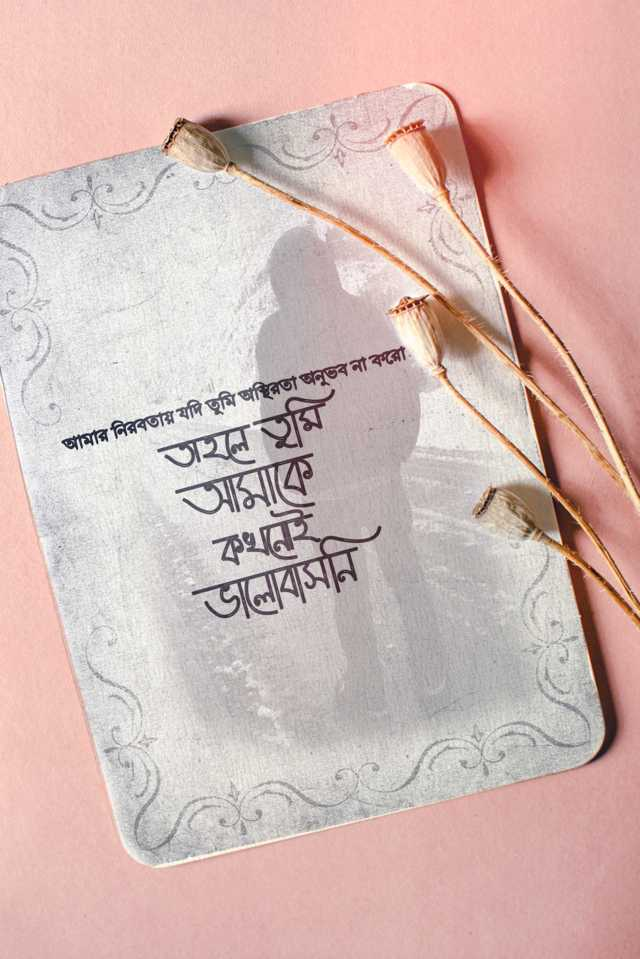 আমার নিরবতায় যদি তুমি অস্থিরতা অনুভব না করো
তাহলে তুমি
আমাকে
কখনোই
ভালোবাসনি